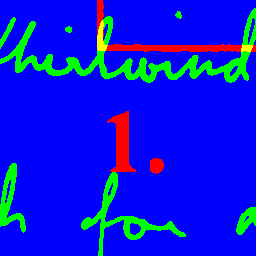 Whirlwind
1.
for